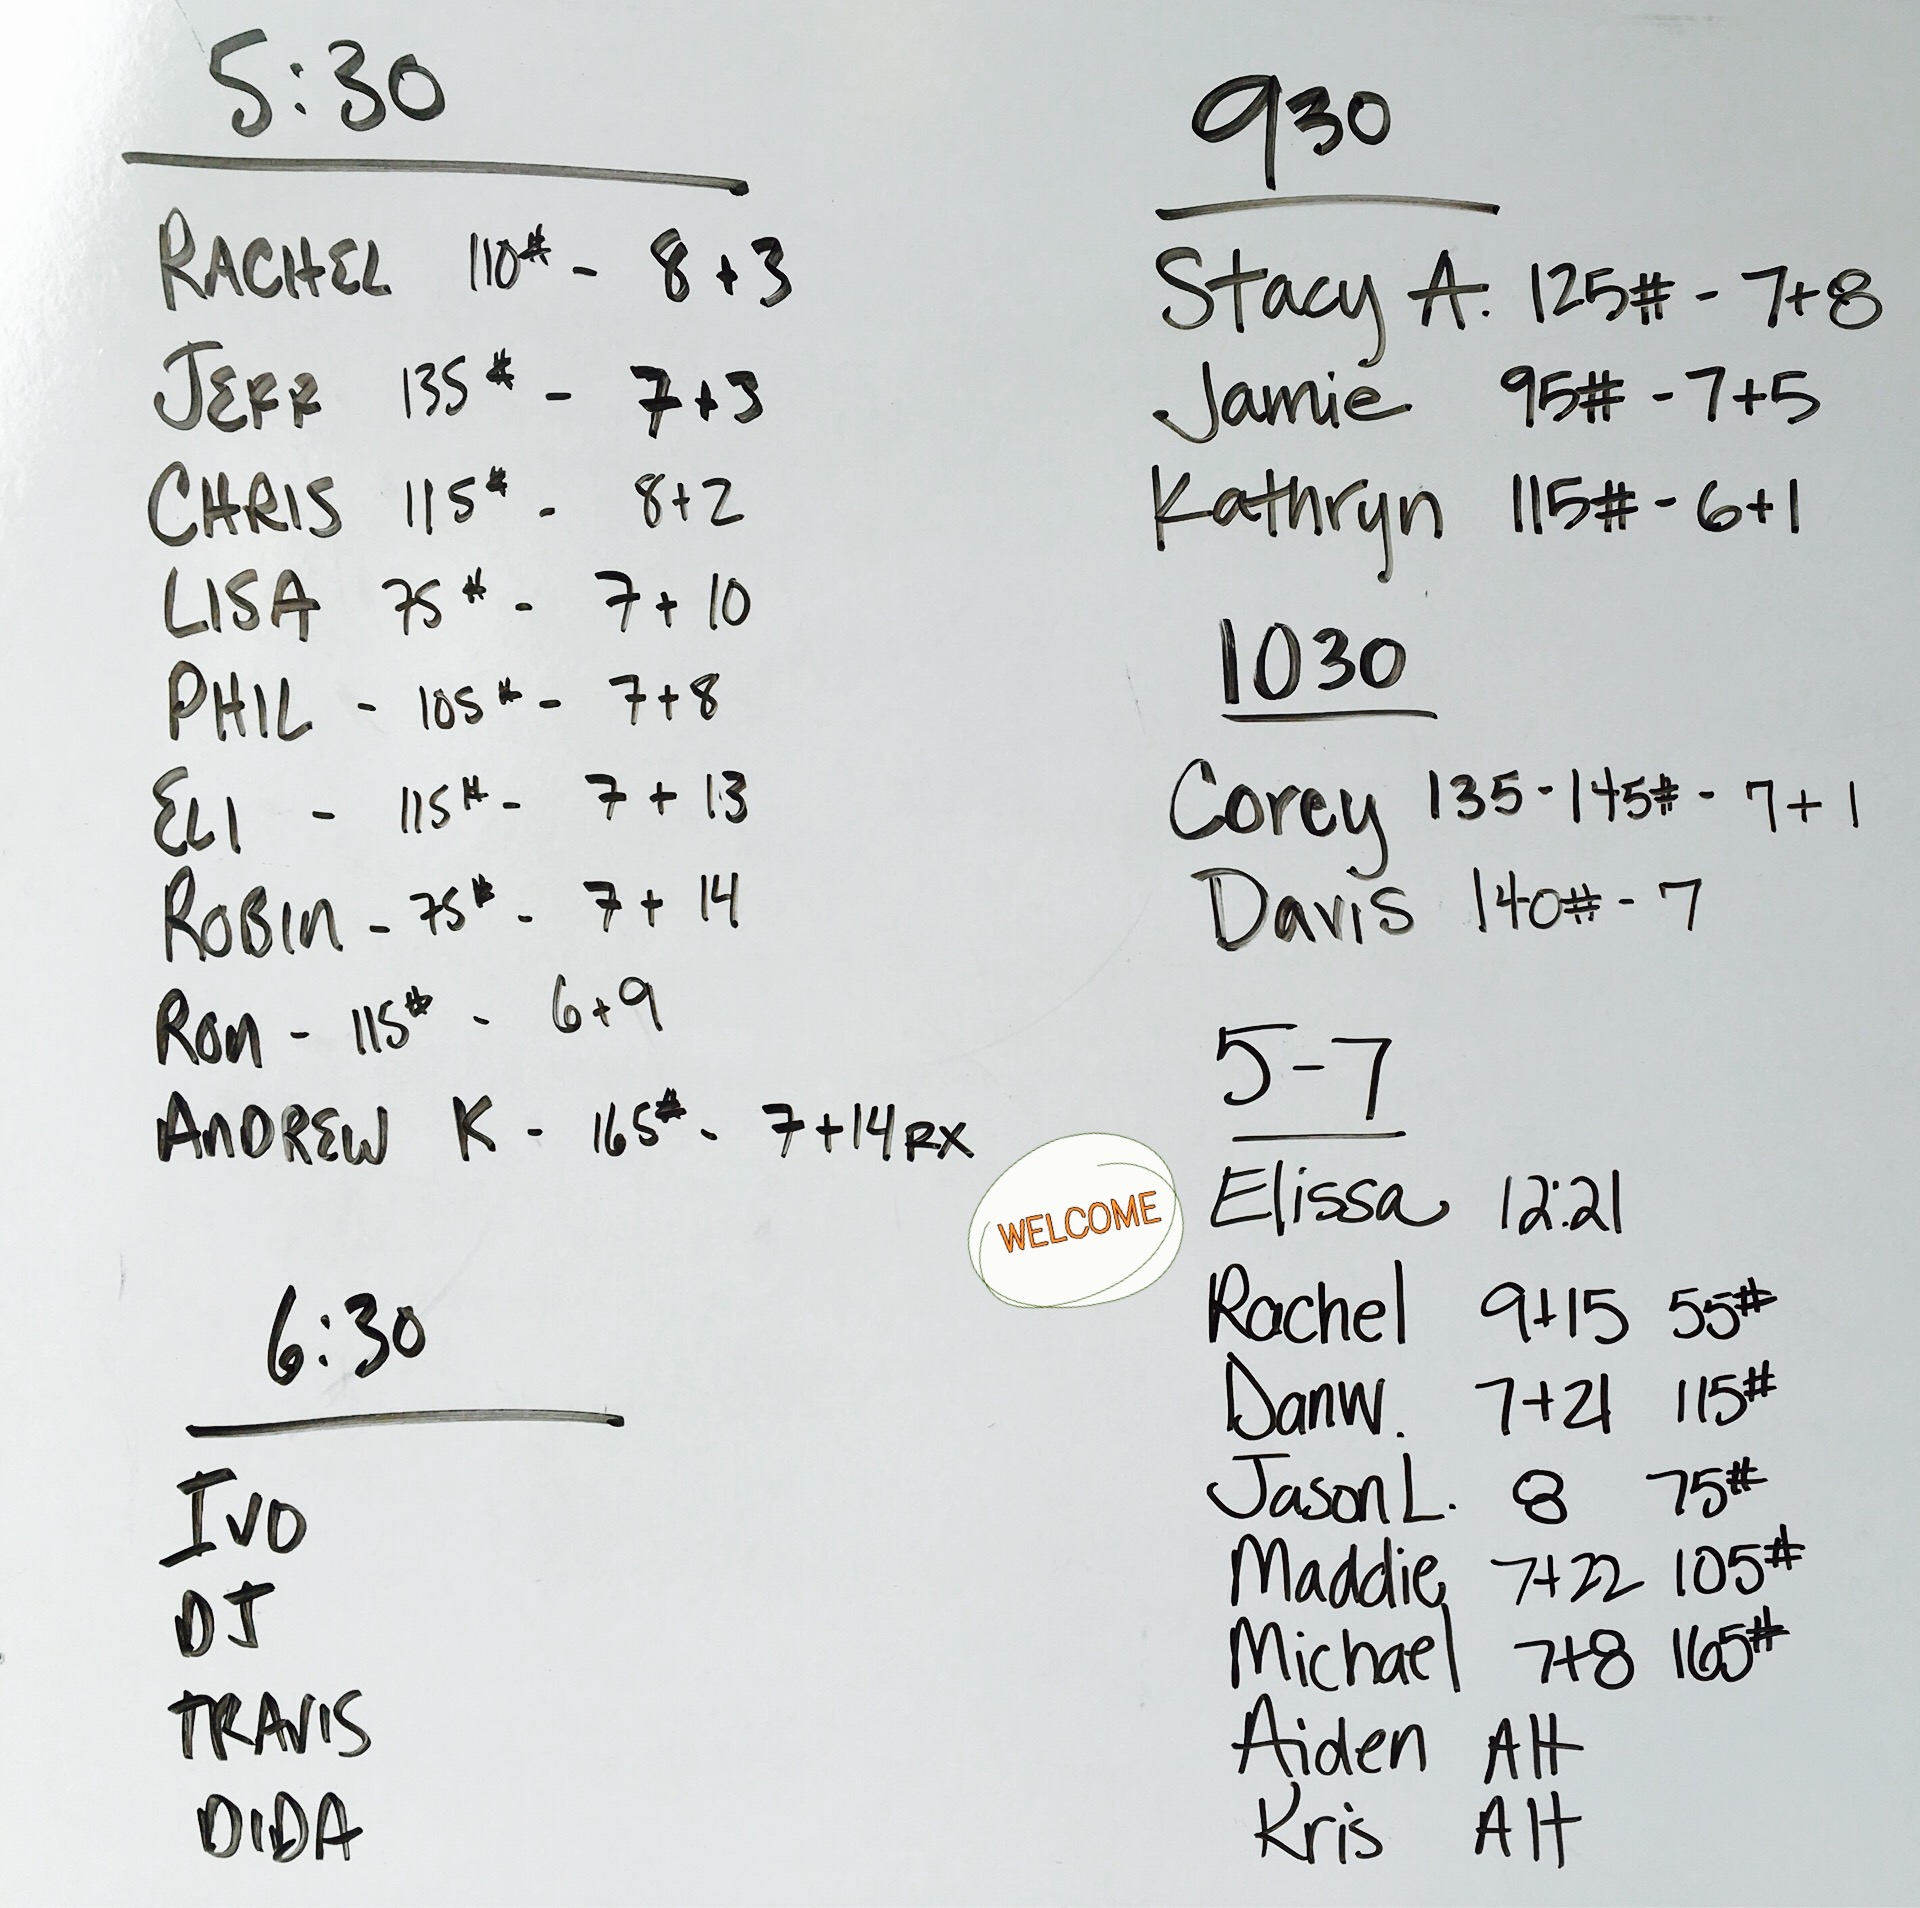 5:30
RACHEL 110# - 8+3
JEFF 135# - 7+3
CHRIS 115# - 8+2
LISA 75# - 7+10
PHIL - 105# - 7+8
ELI - 115# - 7+13
ROBIN - 75# - 7+14
RON - 115# - 6+9
ANDREW K - 165# - 7+14 RX
6:30
IVO
DJ
TRAVIS
DIDA
930
Stacy A. 125# - 7+8
Jamie 95# - 7+5
Kathryn 115# - 6+1
1030
Corey 135-145# - 7+1
Davis 140# - 7
5-7
WELCOME
Elissa 12:21
Rachel 9+15 55#
Dan W. 7+21 115#
Jason L. 8 75#
Maddie 7+22 105#
Michael 7+8 165#
Aiden Alt
Kris Alt